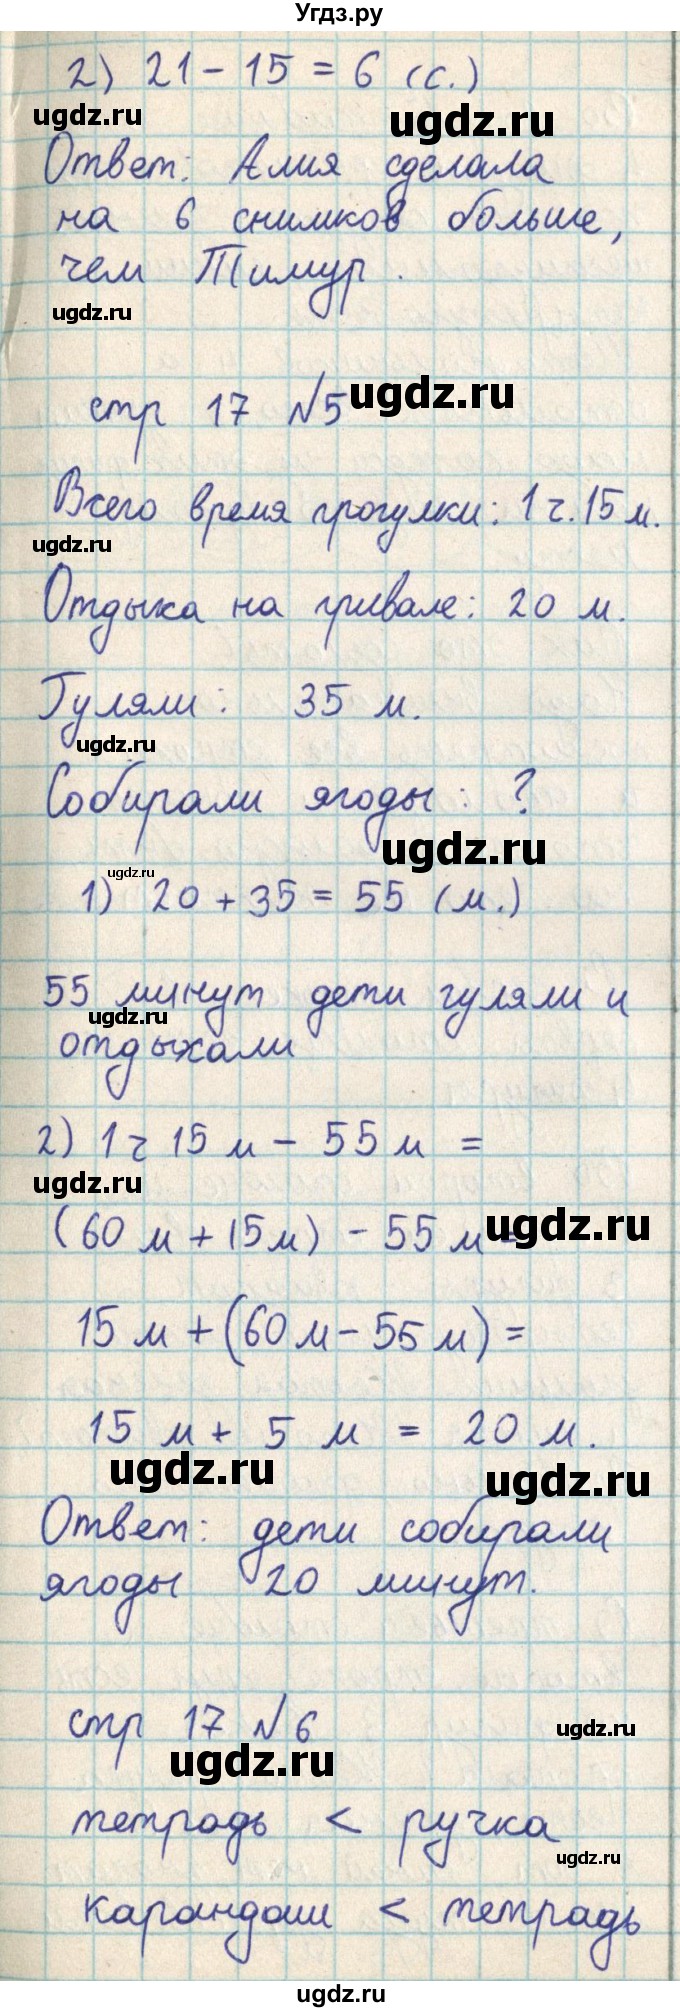 Угдз.ру
2) 21 - 15 = 6 (с.)
ugdz.ru
ugdz.ru
Ответ: Алия сделала
на 6 снимков больше,
чем Тимур.
ugdz.ru
стр 17 №5
ugdz.ru
Всего время прогулки: 1 ч. 15 м.
ugdz.ru
Отдыха на привале: 20 м.
Гуляли: 35 м.
ugdz.ru
Собирали ягоды: ?
ugdz.ru
ugdz.ru
1) 20 + 35 = 55 (м.)
55 минут дети гуляли и
ugdz.ru
отдыхали
2) 1 ч 15 м - 55 м =
ugdz.ru
ugdz.ru
(60 м + 15 м) - 55 м =
15 м + (60 м - 55 м) =
15 м + 5 м = 20 м.
ugdz.ru
ugdz.ru
Ответ: дети собирали
ягоды 20 минут.
стр 17 №6
ugdz.ru
ugdz.ru
тетрадь < ручка
ugdz.ru
карандаш < тетрадь
ugdz.ru